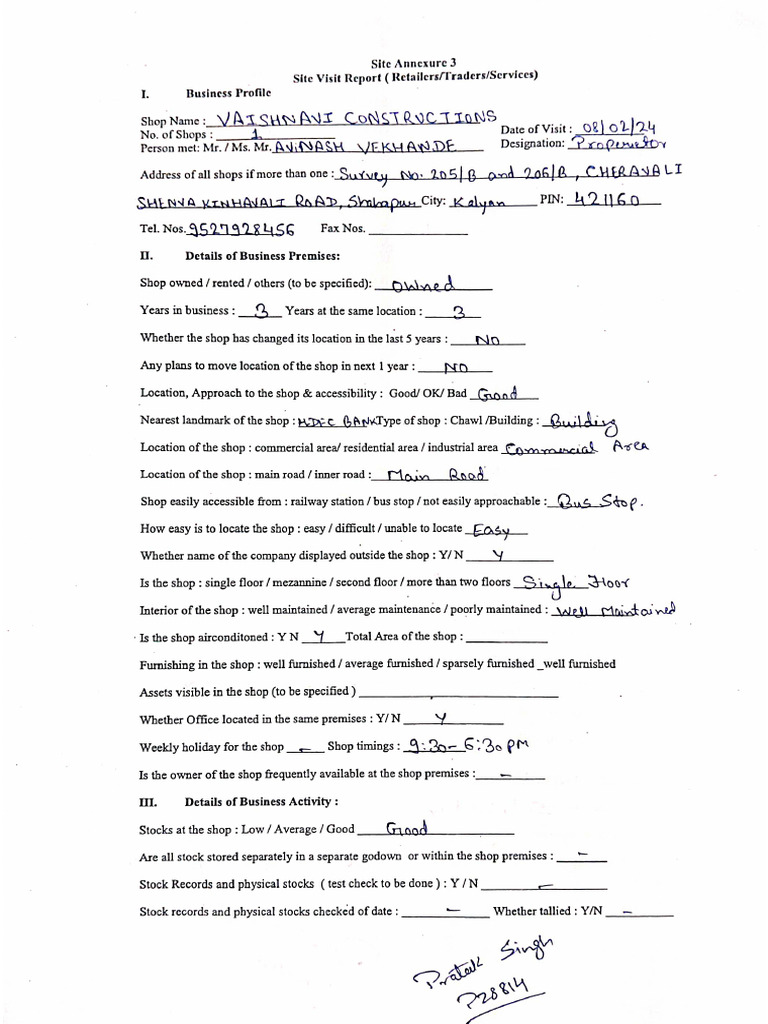 Site Annexure 3
Site Visit Report ( Retailers/Traders/Services)
I. Business Profile
Shop Name : VAISHNAVI CONSTRUCTIONS
No. of Shops : 1 Date of Visit : 08/02/24
Person met: Mr. / Ms. Mr. AVINASH VEKHANDE Designation: Properietor
Address of all shops if more than one : Survey No. 205/B and 206/B, CHERAVALI
SHENVA KINHAVALI ROAD, Shahapur City: Kalyan PIN: 421160
Tel. Nos. 9527928456 Fax Nos.
II. Details of Business Premises:
Shop owned / rented / others (to be specified): Owned
Years in business : 3 Years at the same location : 3
Whether the shop has changed its location in the last 5 years : NO
Any plans to move location of the shop in next 1 year : NO
Location, Approach to the shop & accessibility : Good/ OK/ Bad Good
Nearest landmark of the shop : HDFC BANK Type of shop : Chawl /Building : Building
Location of the shop : commercial area/ residential area / industrial area Commercial Area
Location of the shop : main road / inner road : Main Road
Shop easily accessible from : railway station / bus stop / not easily approachable : Bus Stop.
How easy is to locate the shop : easy / difficult / unable to locate Easy
Whether name of the company displayed outside the shop : Y/ N Y
Is the shop : single floor / mezannine / second floor / more than two floors Single Floor
Interior of the shop : well maintained / average maintenance / poorly maintained : Well Maintained
Is the shop airconditoned : Y N Y Total Area of the shop :
Furnishing in the shop : well furnished / average furnished / sparsely furnished _well furnished
Assets visible in the shop (to be specified )
Whether Office located in the same premises : Y/ N Y
Weekly holiday for the shop - Shop timings : 9:30-6:30 PM
Is the owner of the shop frequently available at the shop premises : -
III. Details of Business Activity :
Stocks at the shop : Low / Average / Good Good
Are all stock stored separately in a separate godown or within the shop premises : -
Stock Records and physical stocks ( test check to be done ) : Y / N -
Stock records and physical stocks checked of date : - Whether tallied : Y/N -
Prataik Singh
P28814